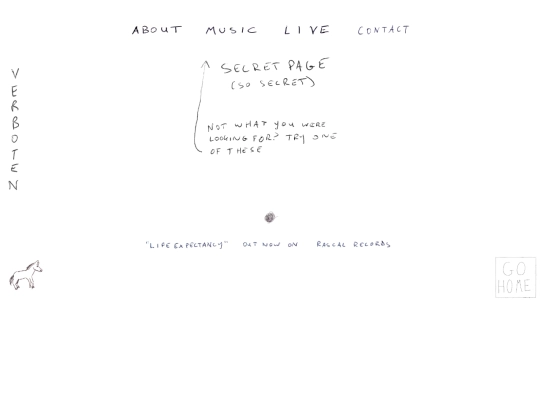 ABOUT MUSIC LIVE CONTACT
VERBOTEN
SECRET PAGE
(SO SECRET)
NOT WHAT YOU WERE
LOOKING FOR? TRY ONE
OF THESE
"LIFE EXPECTANCY" OUT NOW ON RASCAL RECORDS
GO
HOME